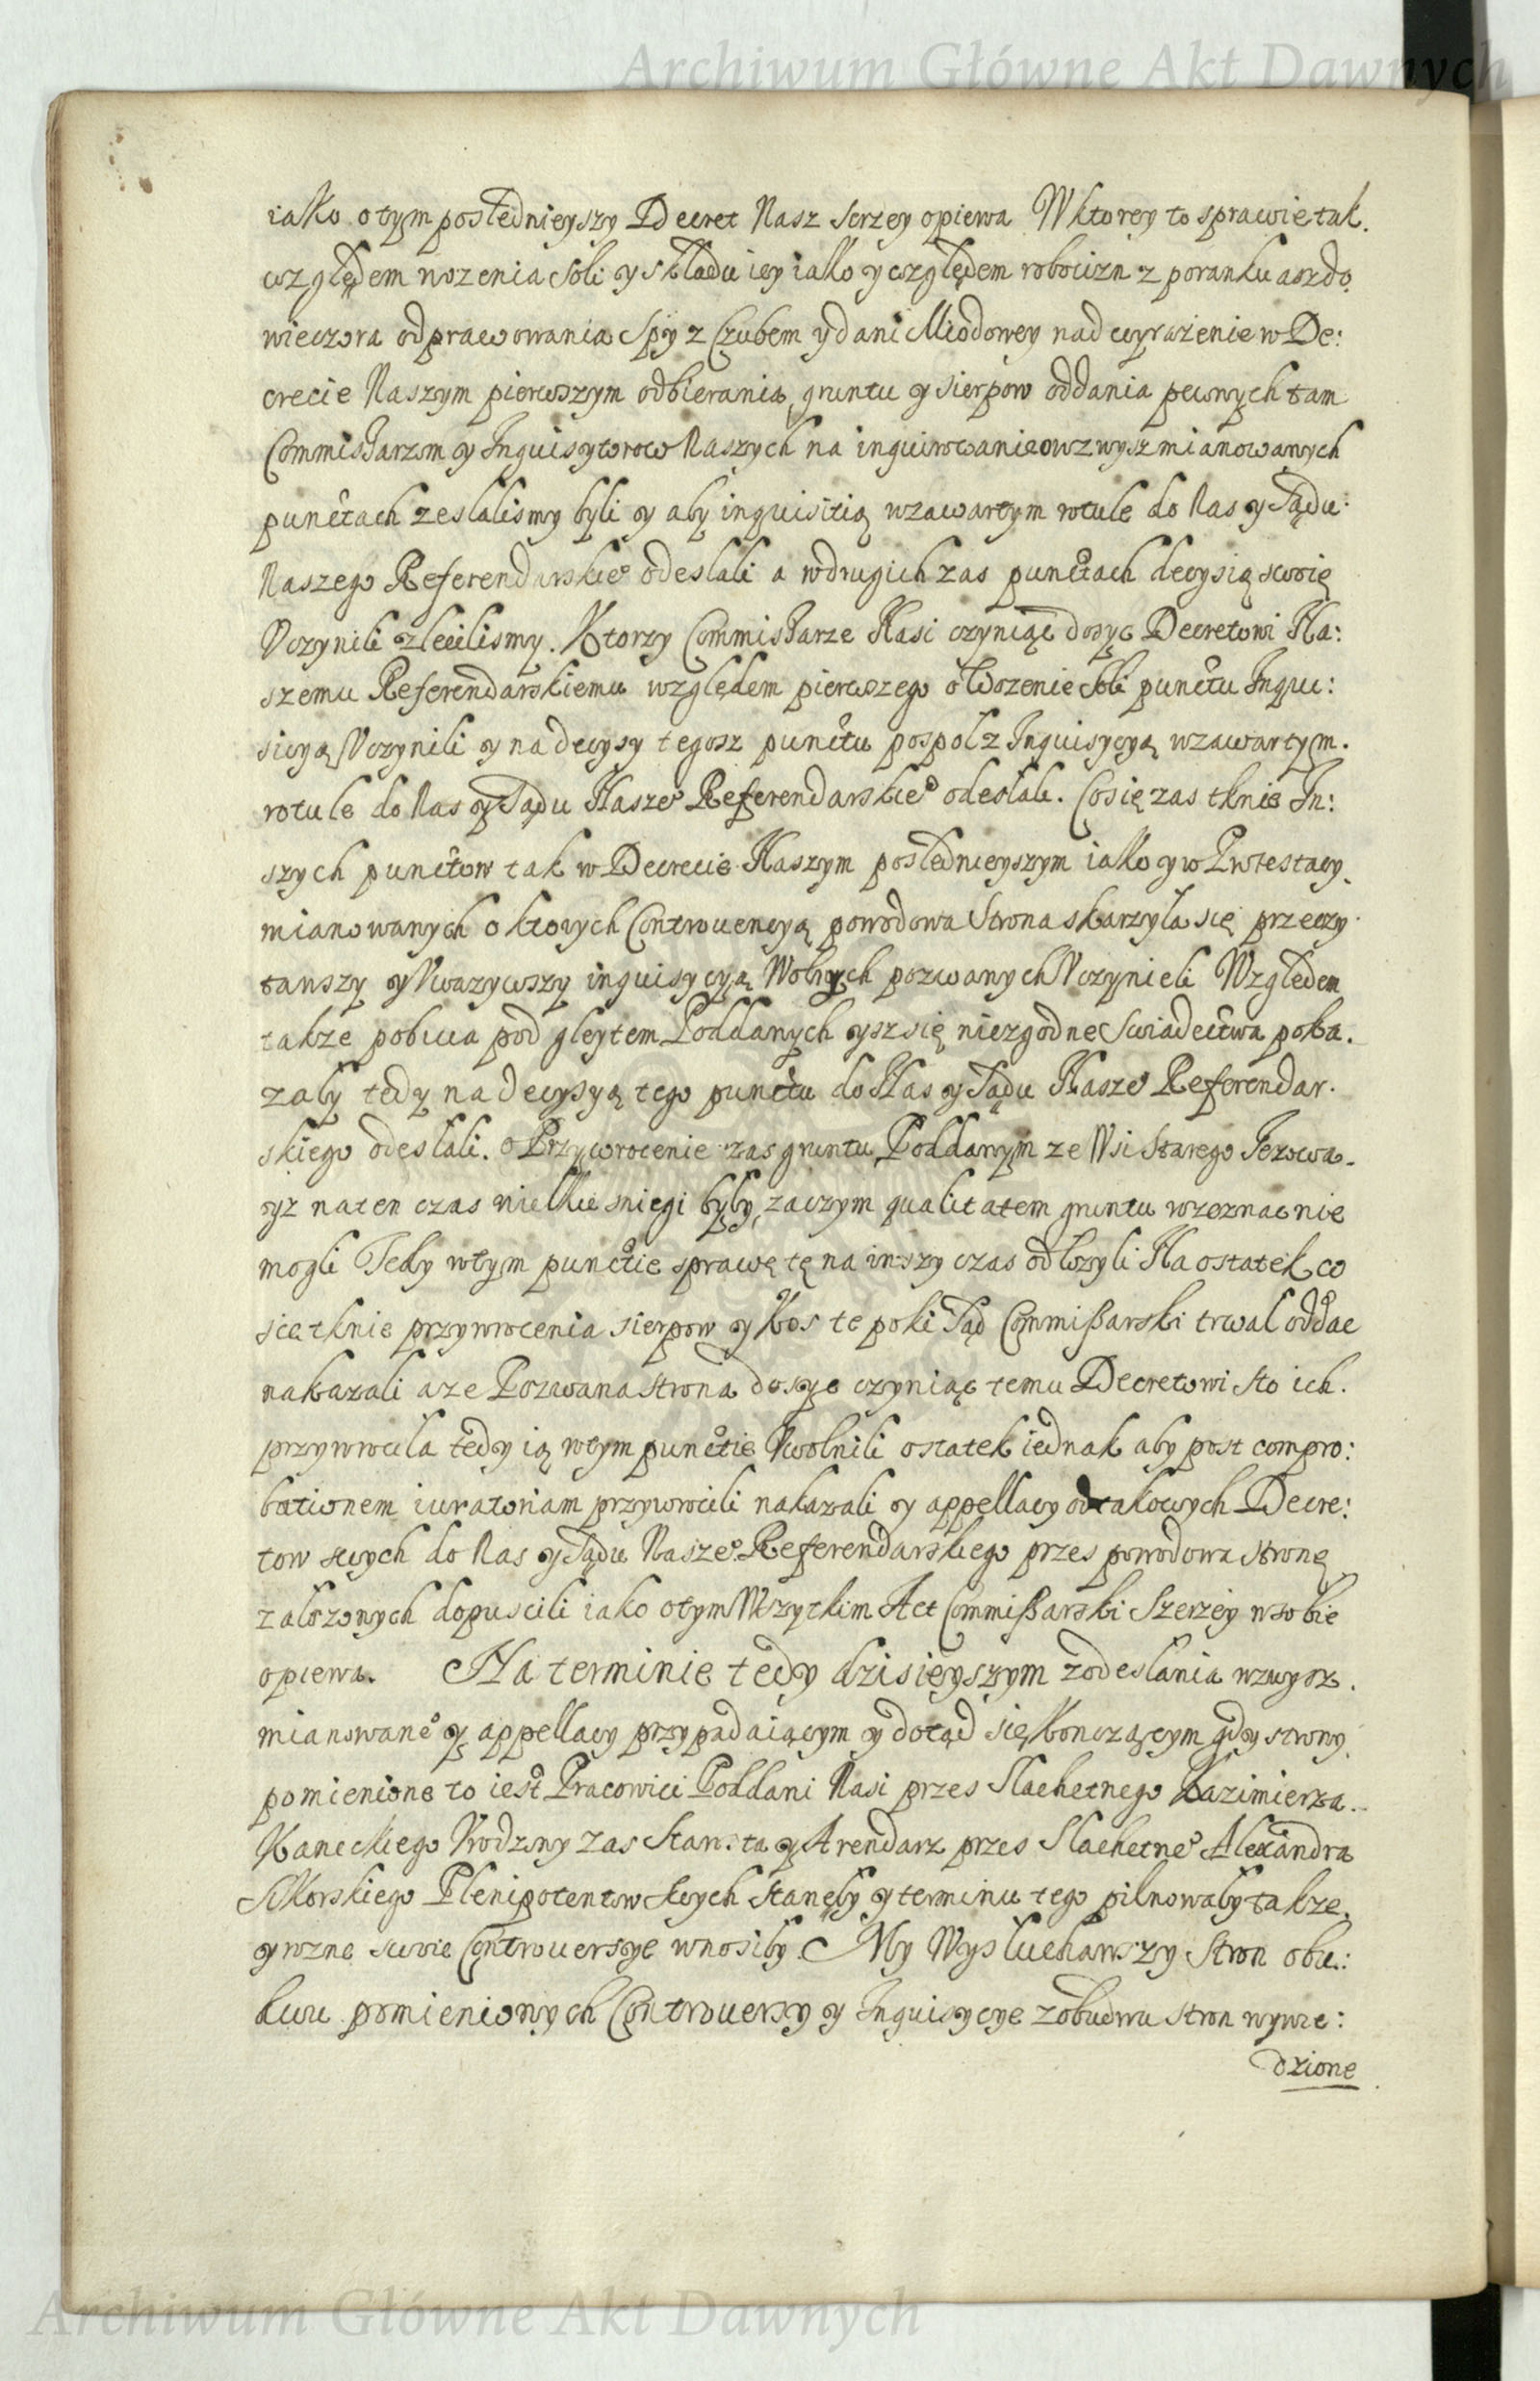 Archiwum Główne Akt Dawnych
iako o tym poslednieyszy Decret Nasz serzey opiewa W ktorey to sprawie tak
względem wozenia Soli y Składu iey iako y względem robocizn z poranku asz do
wieczora odprawowania Spy z Czubem y dani Miodowey nad wyrażenie w De:
crecie Naszym pierwszym odbierania, gruntu y sierpow oddania pewnych tam
Commissarzom y Inquisytorow Naszych na inquirowanie o wzwysz mianowanych
punctach zeslalismy byli y aby inquisitią w zawartym rotule do Nas y Sądu
Naszego Referendarskiego odeslali a w drugich zas punctach decysią swoię
Uczynili zlecilismy. Ktorzy Commissarze Nasi czyniąc dosyc Decretowi Na:
szemu Referendarskiemu względem pierwszego o Wozenie Soli punctu Inqui:
sicyą Uczynili y na decysy tegosz punctu pospol z Inquisycyą w zawartym
rotule do Nas y Sądu Naszego Referendarskiego odeslali. Co się zas tknie In:
szych punctow tak w Decrecie Naszym poslednieyszym iako y w Protestacy
mianowanych o ktorych Controvencyą powodowa Strona skarzyla się przeczy
tawszy y Uwazywszy inquisycyą Wolnych pozwanych Uczynieli Względem
takze pobicia pod gleytem Poddanych ysz się niezgodne Swiadectwa poka
zaly tedy na decysyą tego punctu do Nas y Sądu Naszego Referendar
skiego odeslali. o Przywrocenie zas gruntu Poddanym ze Wsi Starego Jezowa
yz na ten czas wielkie sniegi byly, zaczym qualitatem gruntu wzeznac nie
mogli Tedy w tym punctie sprawę tę na inszy czas odlozyli Na ostatek co
sie tknie przywrocenia sierpow y Kos te poki Sąd Commissarski trwal oddac
nakazali a ze Pozwana strona dosyc czyniąc temu Decretowi sto ich
przywrocila tedy ią w tym punctie Uwolnili ostatek iednak aby post compro:
bationem iuratoriam przywrocili nakazali y appellacy od takowych Decre:
tow swych do Nas y Sądu Naszego Referendarskiego przes powodowa stronę
zalozonych dopuscili iako o tym Wszytkim Act Commissarski Szerzey w sobie
opiewa. Na terminie tedy dzisieyszym z odeslania wzwysz
mianowanego y appellacy przypadaiącym y dotąd się Konczącym gdy strony
pomienione to iest Pracowici Poddani Nasi przes Slachetnego Kazimierza
Kaneckiego Urodzony zas Starosta y Arendarz przes Slachetnego Alexandra
Sikorskiego Plenipotentow swych Stanęly y terminu tego pilnowaly takze
y rozne swoie Controuersye wnosily. My Wysluchawszy Stron obu:
dwu pomienionych Controuersy y Inquisycye z obudwu stron wywie:
dzione
Archiwum Główne Akt Dawnych